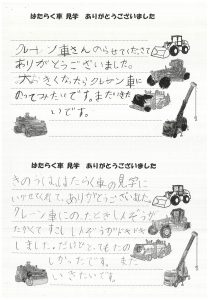 はたらく車 見学 ありがとうございました
クレーン車さんのらせてくださて
ありがとうございました。
大きくなったらクレーン車に
のってみたいです。またいきた
いです。
はたらく車 見学 ありがとうございました
きのうは、はたらく車の見学に
いかせてくれて、ありがとうございました。
クレーン車にのったとき
たかくてすこし
しました。だけど、とてもたの
しかったです。また
いきたいです。